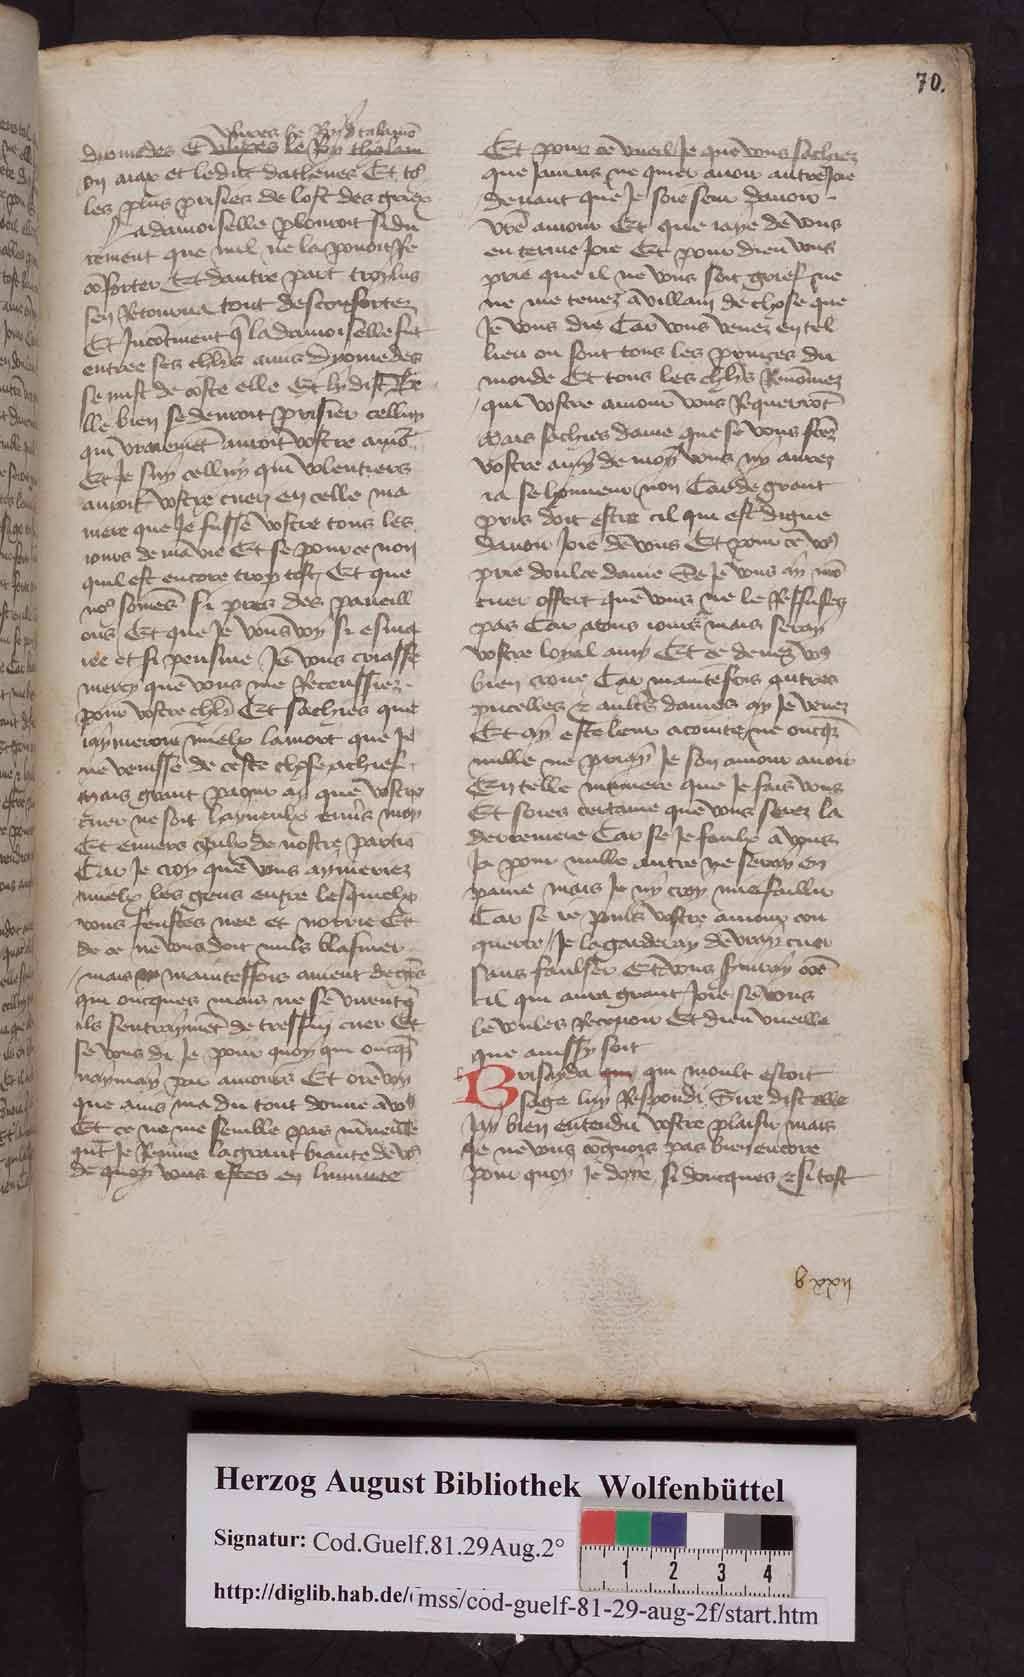 70.
ulixes le Roy talamō
dyomedes Et ulixes le Roy thalam
on aiax et le duc dathenes Et to9
les plus prisies de lost des griex
La damoiselle plouroit si du
rement que nul ne la pouoit se
cōforter Et dautre part troylus
sen Retourna tout desconfortez
Et Incōtinent q̄ la damoiselle fut
entree ses chl̄rs amis dyomedes
se mist de coste elle Et ly dist Be
lle bien se deuroit prisier celluy
qui vraiemēt auroit vostre amo2
Et Je suy celluy qui volentiers
auroit vostre cuer en celle ma
niere que Je fusse vostre tous les
iours de ma vie Et se pour ce non
quil est encore trop tost Et que
no9 somēs si pres des paueill
ons Et que Je vous voy si esma
iee et si pensiue Je vous criasse
mercy que vous me Receussiez
pour vostre chl̄r Et sachies que
iaymeroie mielx la mort que Je
ne venisse de ceste chose a chief
mais grant paour ay que vostre
cuer ne soit hayneulx enūs moy
Et enuers ceulx de nostre partie
Car Je croy que vous aymeriez
mielx les gens entre lesquelx
vous feustes nee et norrie Et
de ce ne vous doit nuls blasmer
mais maintesfois auient
qui oncques mais ne se virent q̄
ils sentrayment de tresfin cuer Et
se vous di Je pour quoy qui oncq̄s
naymay par amours Et ore voy
que ains ma du tout donne a vo9
Et ce ne me semble pas m̄ueille
quāt Je Remire la grant biaute de vo9
de quoy vous estes en luminee
Et pour ce vueil Je que vous sachiez
que Jamais ne quier auoir autre Joie
deuant que Je soie seur dauoir
vrē amour Et que iaye de vous
enterine Joie Et pour dieu vous
prie que il ne vous soit grief ne
ne me tenez a villain de chose que
Je vous die Car vous venez en tel
lieu ou sont tous les princes du
monde Et tous les chl̄rs Renōmez
qui vostre amour vous Requerrōt
Mais sachies dame que se vous faitez
vostre amy de moy vous ny aurez
ia se honneur non Car de grant
pris doit estre cil qui est digne
dauoir Joie de vous Et pour ce vo9
prie doulce dame Se Je vous ay mō
cuer offert que vous ne le Reffusies
pas Car a tous iours mais seray
vostre loyal amy Et ce deuez vo9
bien croire Car maintesfois autres
pucelles & aultrs dames ay Je veuez
Et ay este leur acointe ne oncq̄s
nulle ne priay Je son amour auoir
En telle maniere que Je fais vous
Et soies certaine que vous serez la
derreniere Car se Je faulx a vous
Ja pour nulle autre ne seray en
paine mais Je ny croy mie faillir
Car se ie puis vostre amour con
querre Je la garderay de vray cuer
sans faulser Et a vous seruiray cōe
cil qui aura grant Joie se vous
le voules Receuoir Et dieu vueille
que aussy soit
Brisayda qui moult estoit
sage luy Respondi Sire dist elle
Jay bien entendu vostre plaisir mais
Je ne vous cōgnois pas bien encore
pour quoy Je doye si doncques & si tost
b xxii
Herzog August Bibliothek Wolfenbüttel
Signatur: Cod.Guelf.81.29Aug.2°
http://diglib.hab.de/mss/cod-guelf-81-29-aug-2f/start.htm
1 2 3 4